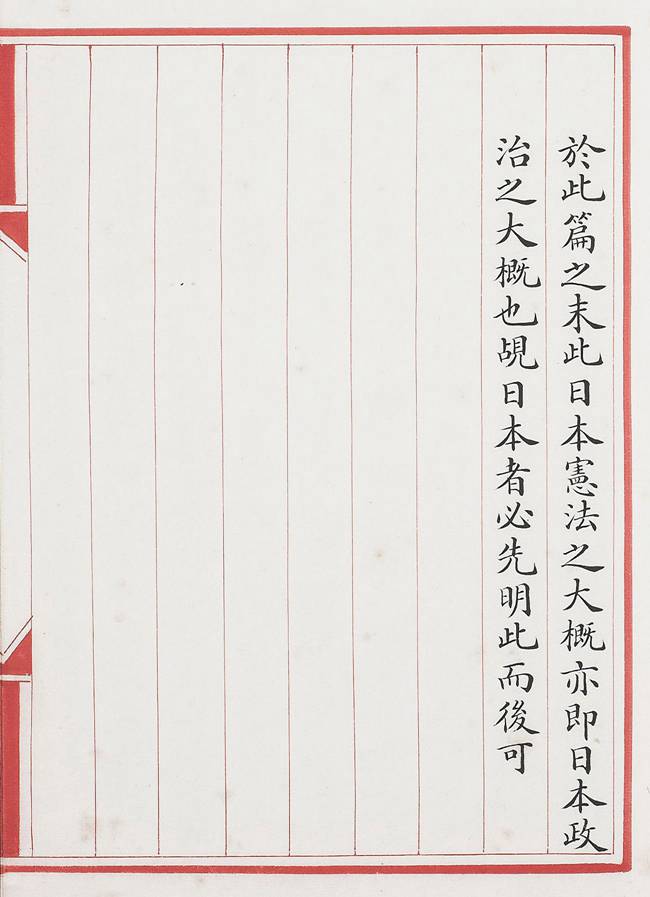 於此篇之末此日本憲法之大概亦即日本政
治之大概也覘日本者必先明此而後可